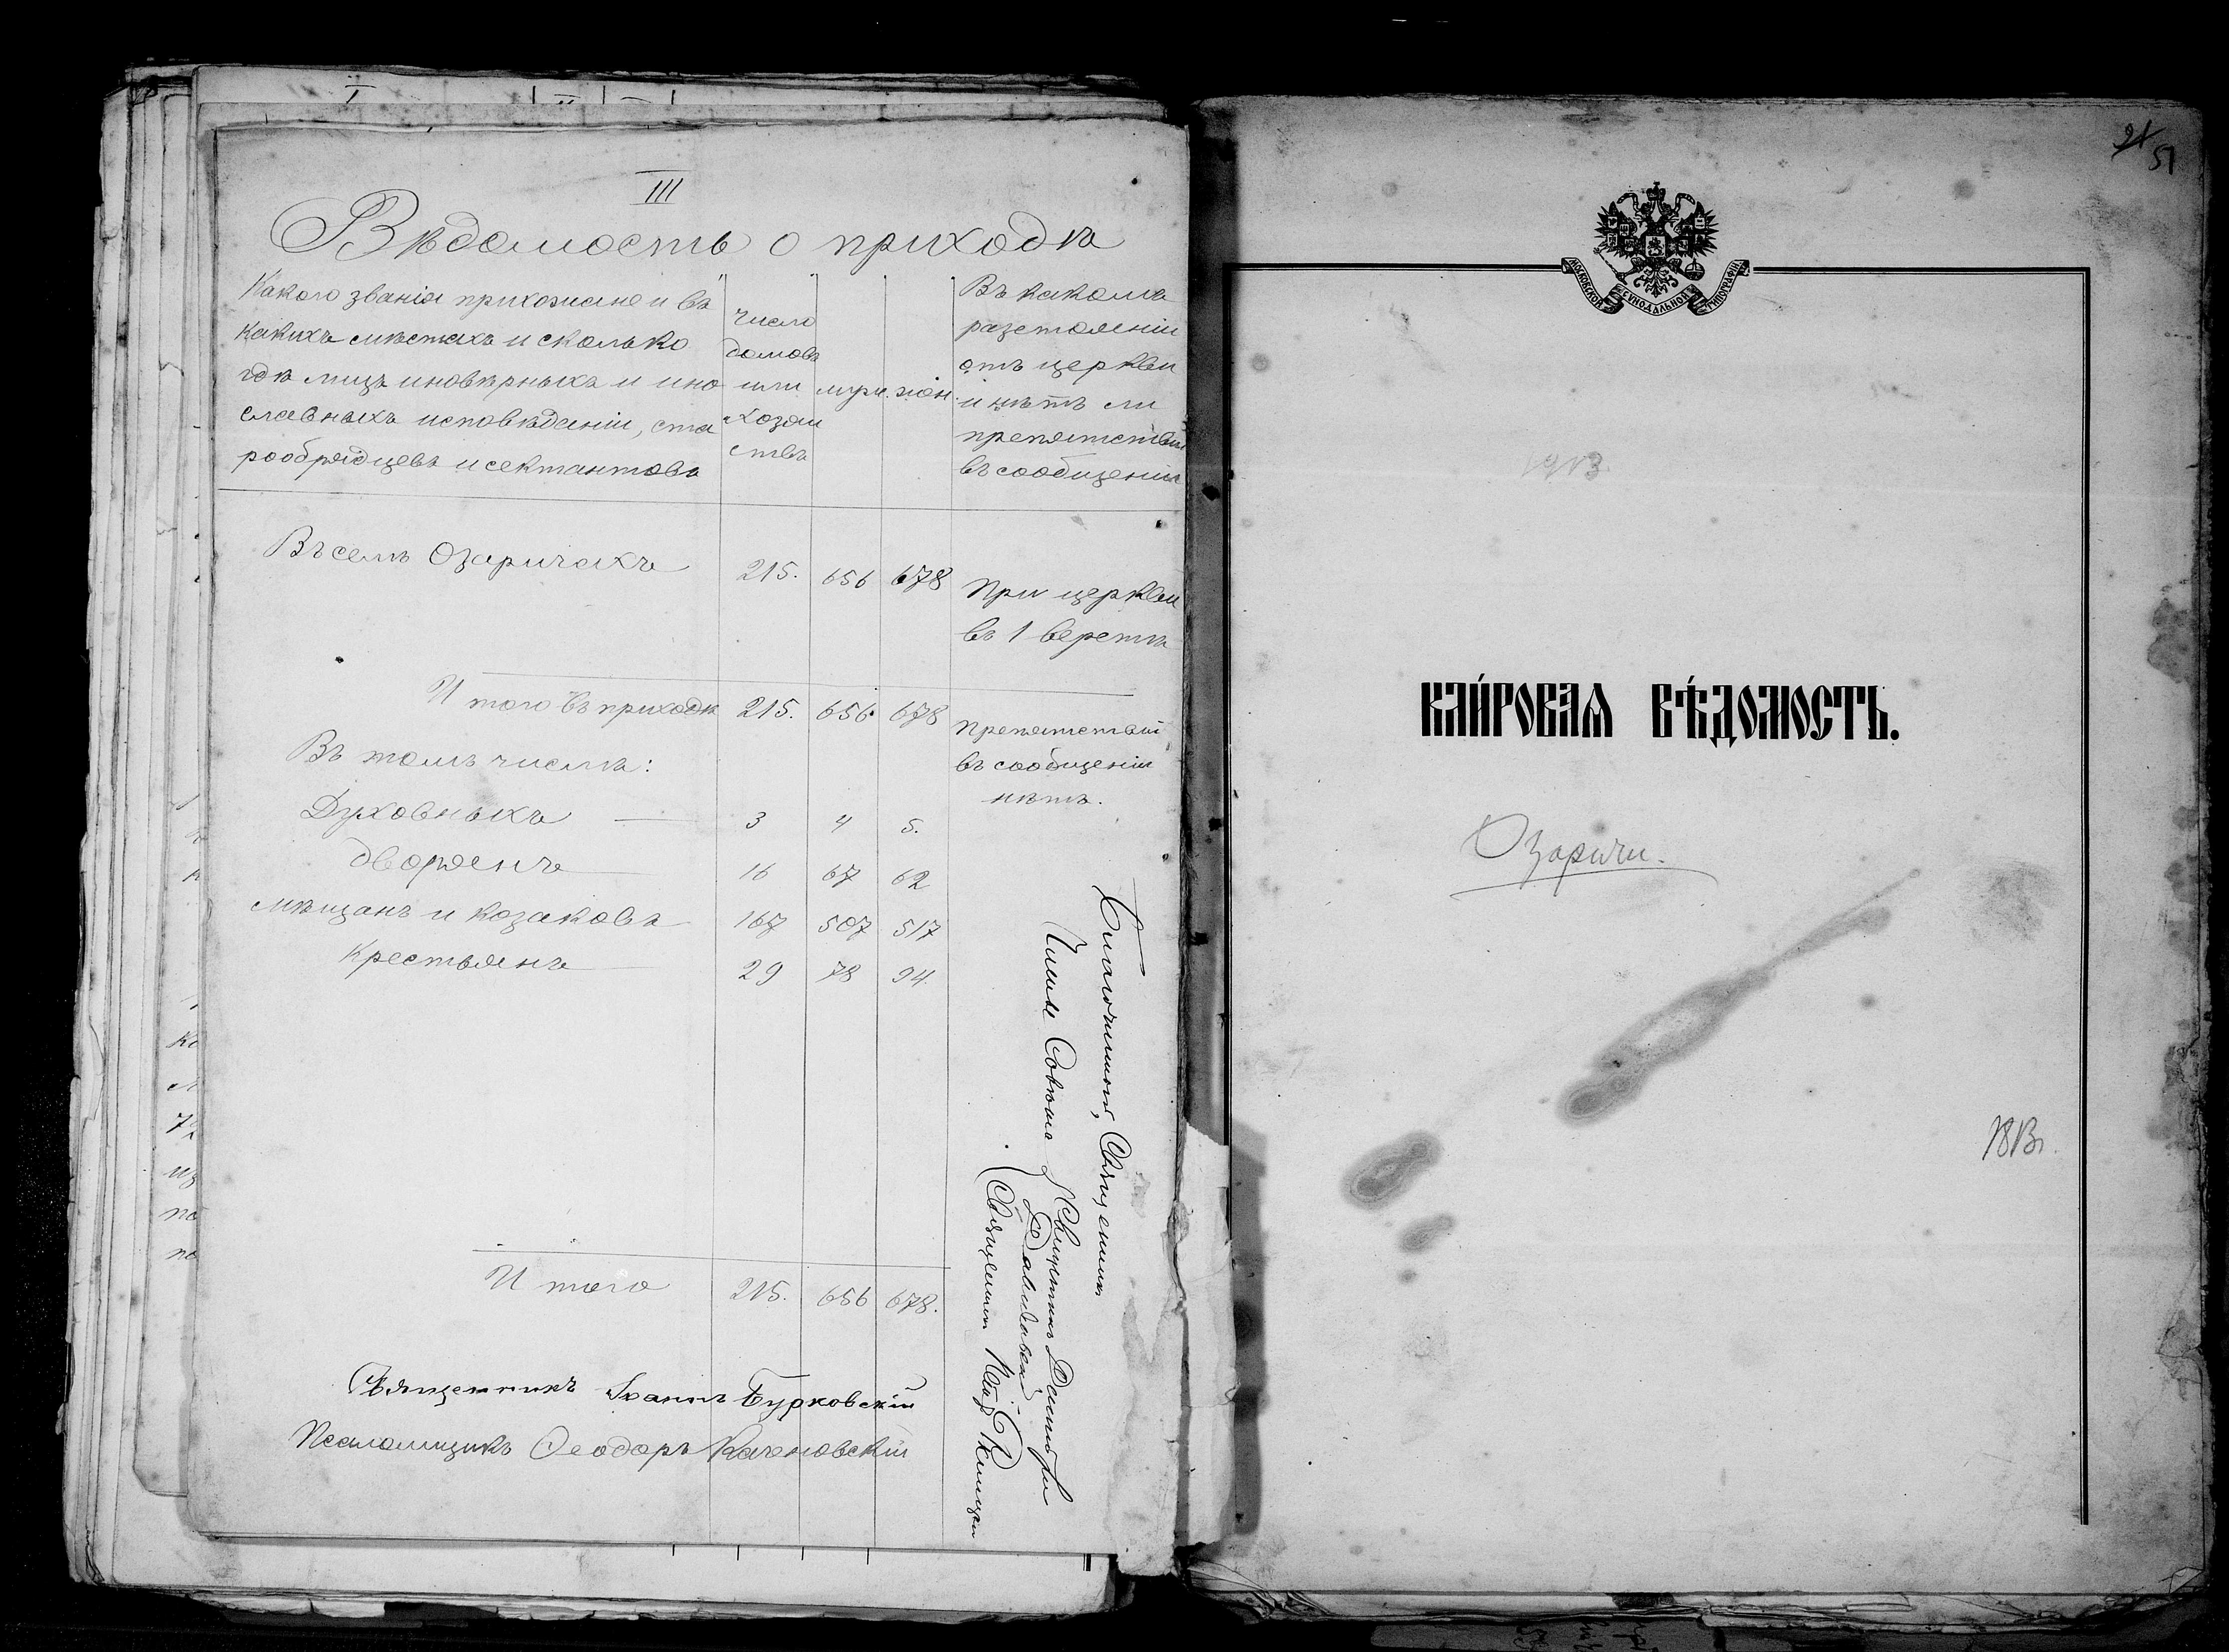 III
Вѣдомость о приходѣ
Какого званія прихожане и въ
какихъ мѣстахъ и сколько
гдѣ лицъ иновѣрныхъ и ино
славныхъ исповѣданій, ста
рообрядцевъ и сектантовъ
число
домовъ
или
хозяй
ствъ
муж.
жен.
Въ какомъ
разстояніи
отъ церкви
и нѣтъ ли
препятствій
въ сообщеніи
Въ селѣ Озаричахъ 215. 656 678
При церкви
въ 1 верстѣ
Итого въ приходѣ 215. 656 678
Препятствій
въ сообщеніи
нѣтъ.
Въ томъ числѣ:
Духовныхъ 3 4 5.
Дворянъ 16 67 62
Мѣщанъ и козаковъ 167 507 517
Крестьянъ 29 78 94.
Итого 215. 656 678.
Священникъ Іоаннъ Бурковскій
Псаломщикъ Ѳеодоръ Каченовскій
Благочинный, Священникъ
Члены Совѣта
Священникъ Димитрій
Священникъ Петръ
51
МОСКОВСКОЙ СѴНОДАЛЬНОЙ ТИПОГРАФІИ
1913.
КЛИ́РОВАЯ ВѢ́ДОМОСТЬ.
Озаричи.